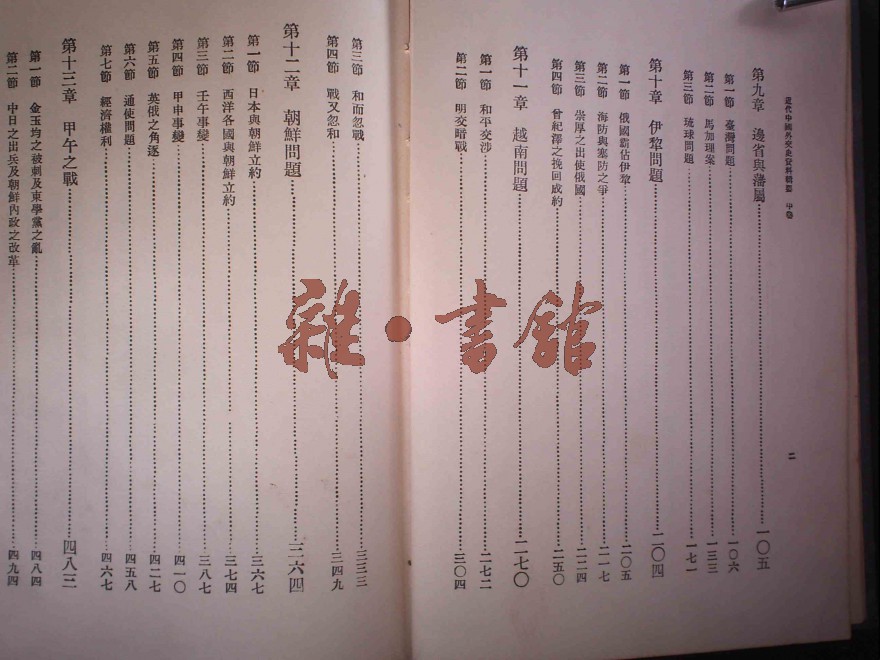 近代中國外交史資料輯要 中卷
二
第九章 邊省與藩屬 一〇五
第一節 臺灣問題 一〇六
第二節 馬加理案 一三三
第三節 琉球問題 一七一
第十章 伊犂問題 二〇四
第一節 俄國霸佔伊犂 二〇五
第二節 海防與塞防之爭 二一七
第三節 崇厚之出使俄國 二二四
第四節 曾紀澤之挽回成約 二五〇
第十一章 越南問題 二七〇
第一節 和平交涉 二七二
第二節 明交暗戰 三〇四
第三節 和而忽戰 三三三
第四節 戰又忽和 三四九
第十二章 朝鮮問題 三六四
第一節 日本與朝鮮立約 三六七
第二節 西洋各國與朝鮮立約 三七四
第三節 壬午事變 三八七
第四節 甲申事變 四一〇
第五節 英俄之角逐 四二七
第六節 通使問題 四五八
第七節 經濟權利 四六七
第十三章 甲午之戰 四八三
第一節 金玉均之被刺及東學黨之亂 四八四
第二節 中日之出兵及朝鮮內政之改革 四九四
雜·書館